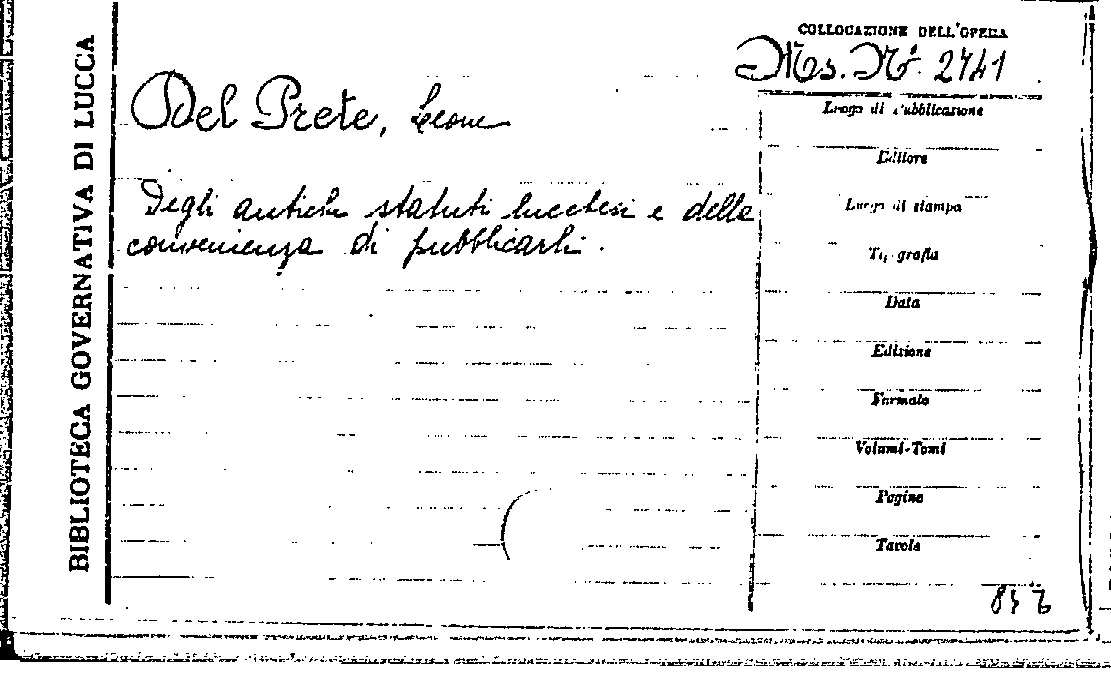 BIBLIOTECA GOVERNATIVA DI LUCCA
COLLOCAZIONE DELL'OPERA
Ms. N. 2741
Del Prete, Leone
Degli antichi statuti lucchesi e della
convenienza di pubblicarli.
Luogo di Pubblicazione
Editore
Luogo di stampa
Tipografia
Data
Edizione
Formato
Volumi-Tomi
Pagine
Tavole